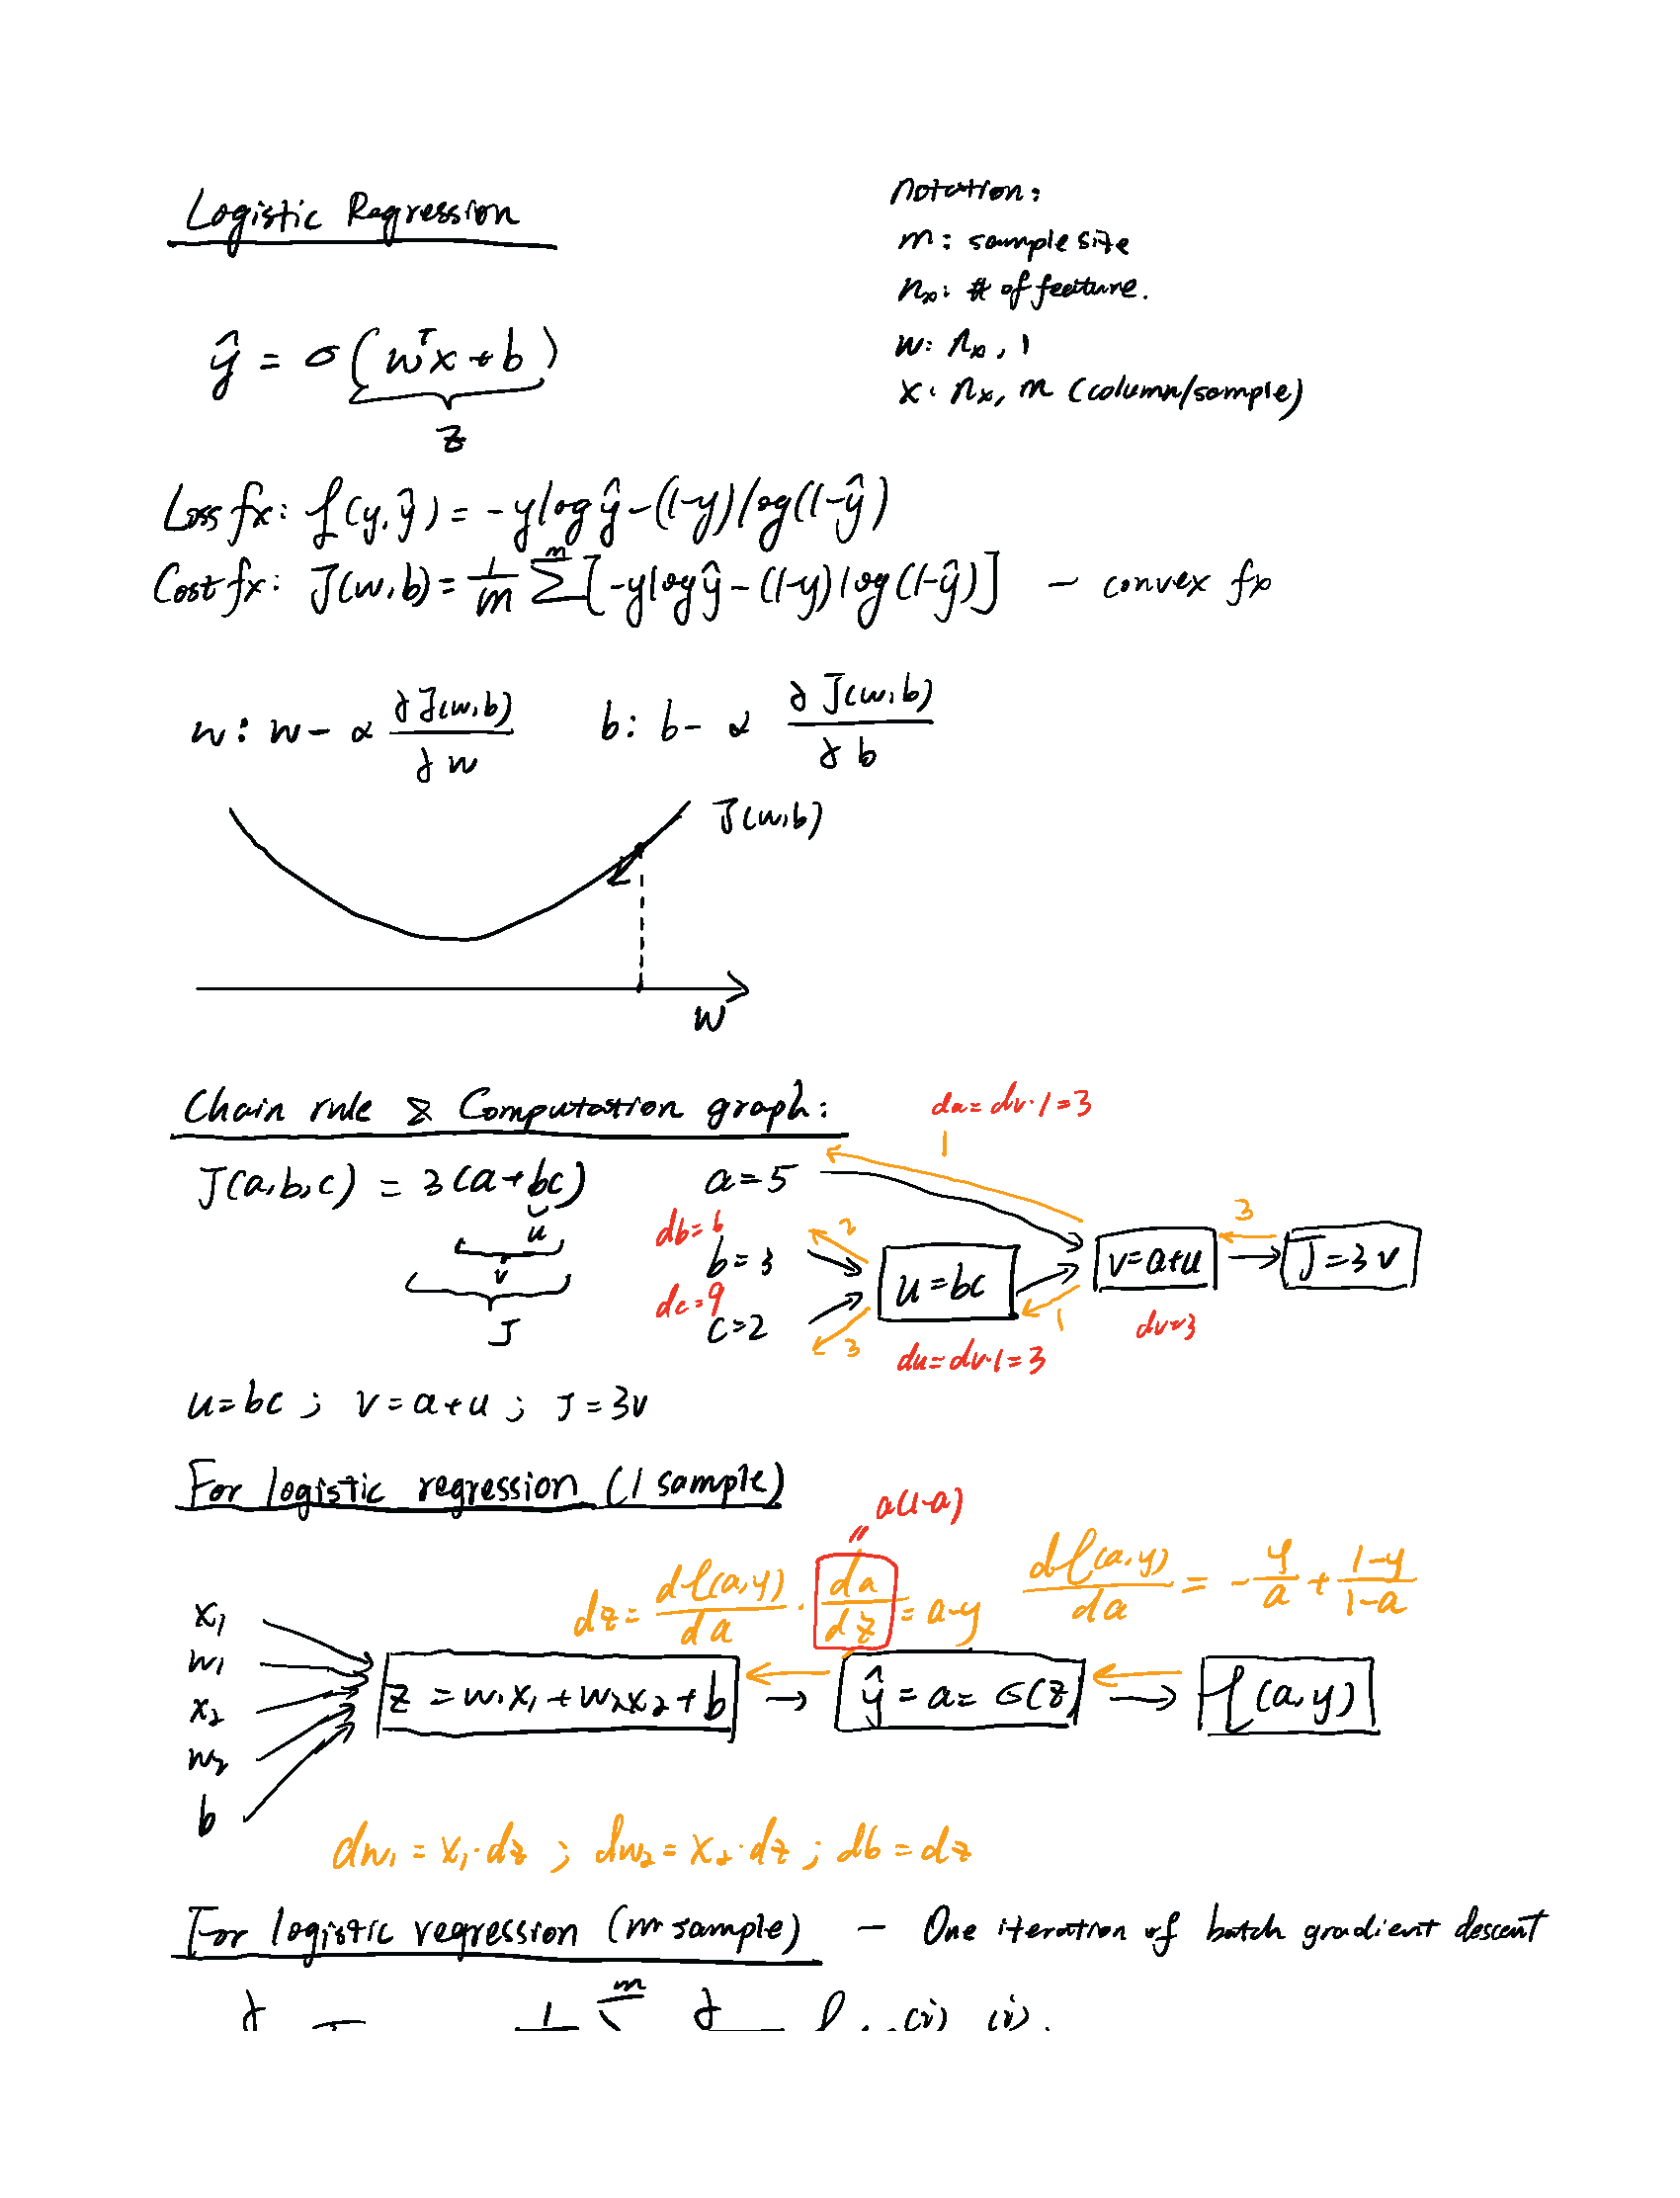 Logistic Regression
notation:
m: sample size
nx: # of feature.
w: nx, 1
x: nx, m (column/sample)
ŷ = σ(wᵀx + b)
z
Loss fx: ℒ(y, ŷ) = -y log ŷ - (1-y) log(1-ŷ)
Cost fx: J(w,b) = 1/m Σ^m [-y log ŷ - (1-y) log(1-ŷ)] — convex fx
w: w - α ∂J(w,b)/∂w    b: b - α ∂J(w,b)/∂b
J(w,b)
w
Chain rule & Computation graph:
da = dv·1 = 3
1
J(a,b,c) = 3(a+bc)    a = 5
u
v
J
db = 6
2
b = 3
dc = 9
c = 2
3
u = bc
du = dv·1 = 3
1
v = a+u
dv = 3
3
J = 3v
u = bc ; v = a+u ; J = 3v
For logistic regression (1 sample)
a(1-a)
=
dz = dℒ(a,y)/da · da/dz = a-y    dℒ(a,y)/da = -y/a + (1-y)/(1-a)
x₁
w₁
x₂
w₂
b
z = w₁x₁ + w₂x₂ + b → ŷ = a = σ(z) → ℒ(a,y)
dw₁ = x₁·dz ; dw₂ = x₂·dz ; db = dz
For logistic regression (m sample) — One iteration of batch gradient descent